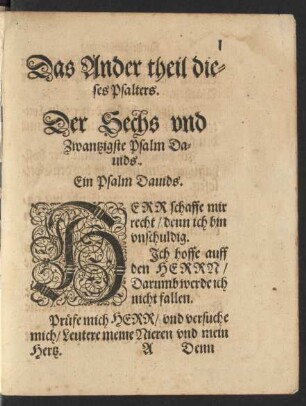 1
Das Ander theil die-
ses Psalters.
Der Sechs vnd
Zwantzigste Psalm Da-
uids.
Ein Psalm Dauids.
HERR schaffe mir
recht / denn ich bin
vnschuldig.
Jch hoffe auff
den HERRN /
Darumb werde ich
nicht fallen.
Prüfe mich HERR / vnd versuche
mich / Leutere meine Nieren vnd mein
Hertz. A Denn